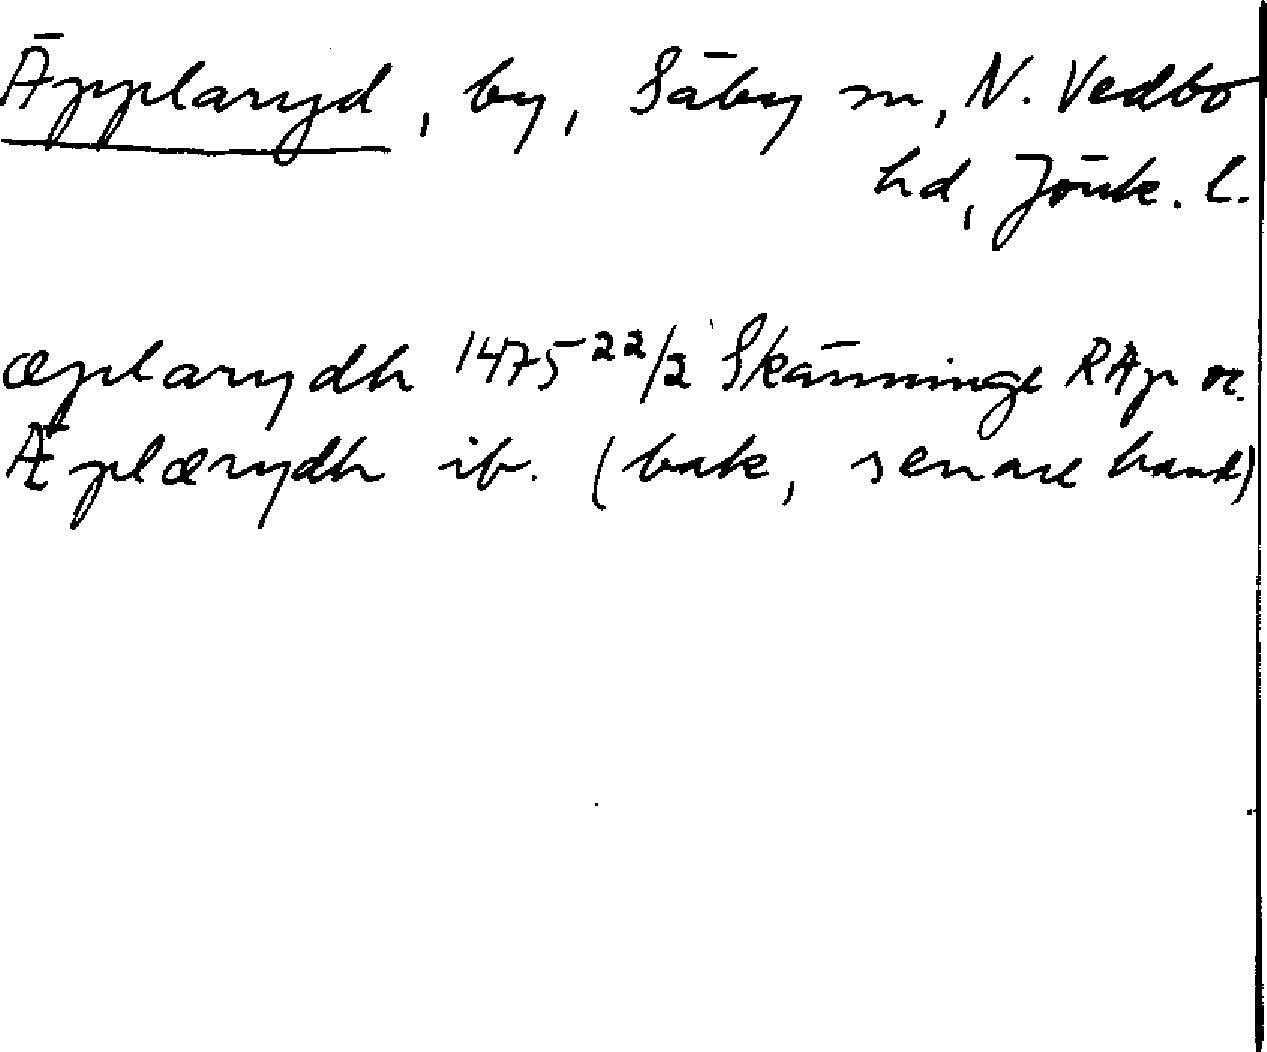 Äpplaryd, by, Säby sn, N. Vedbo
hd, Jönk. l.
æplarydh 1475 22/2 Skänninge RAp or.
Æplærydh ib. (bak, senare hand)